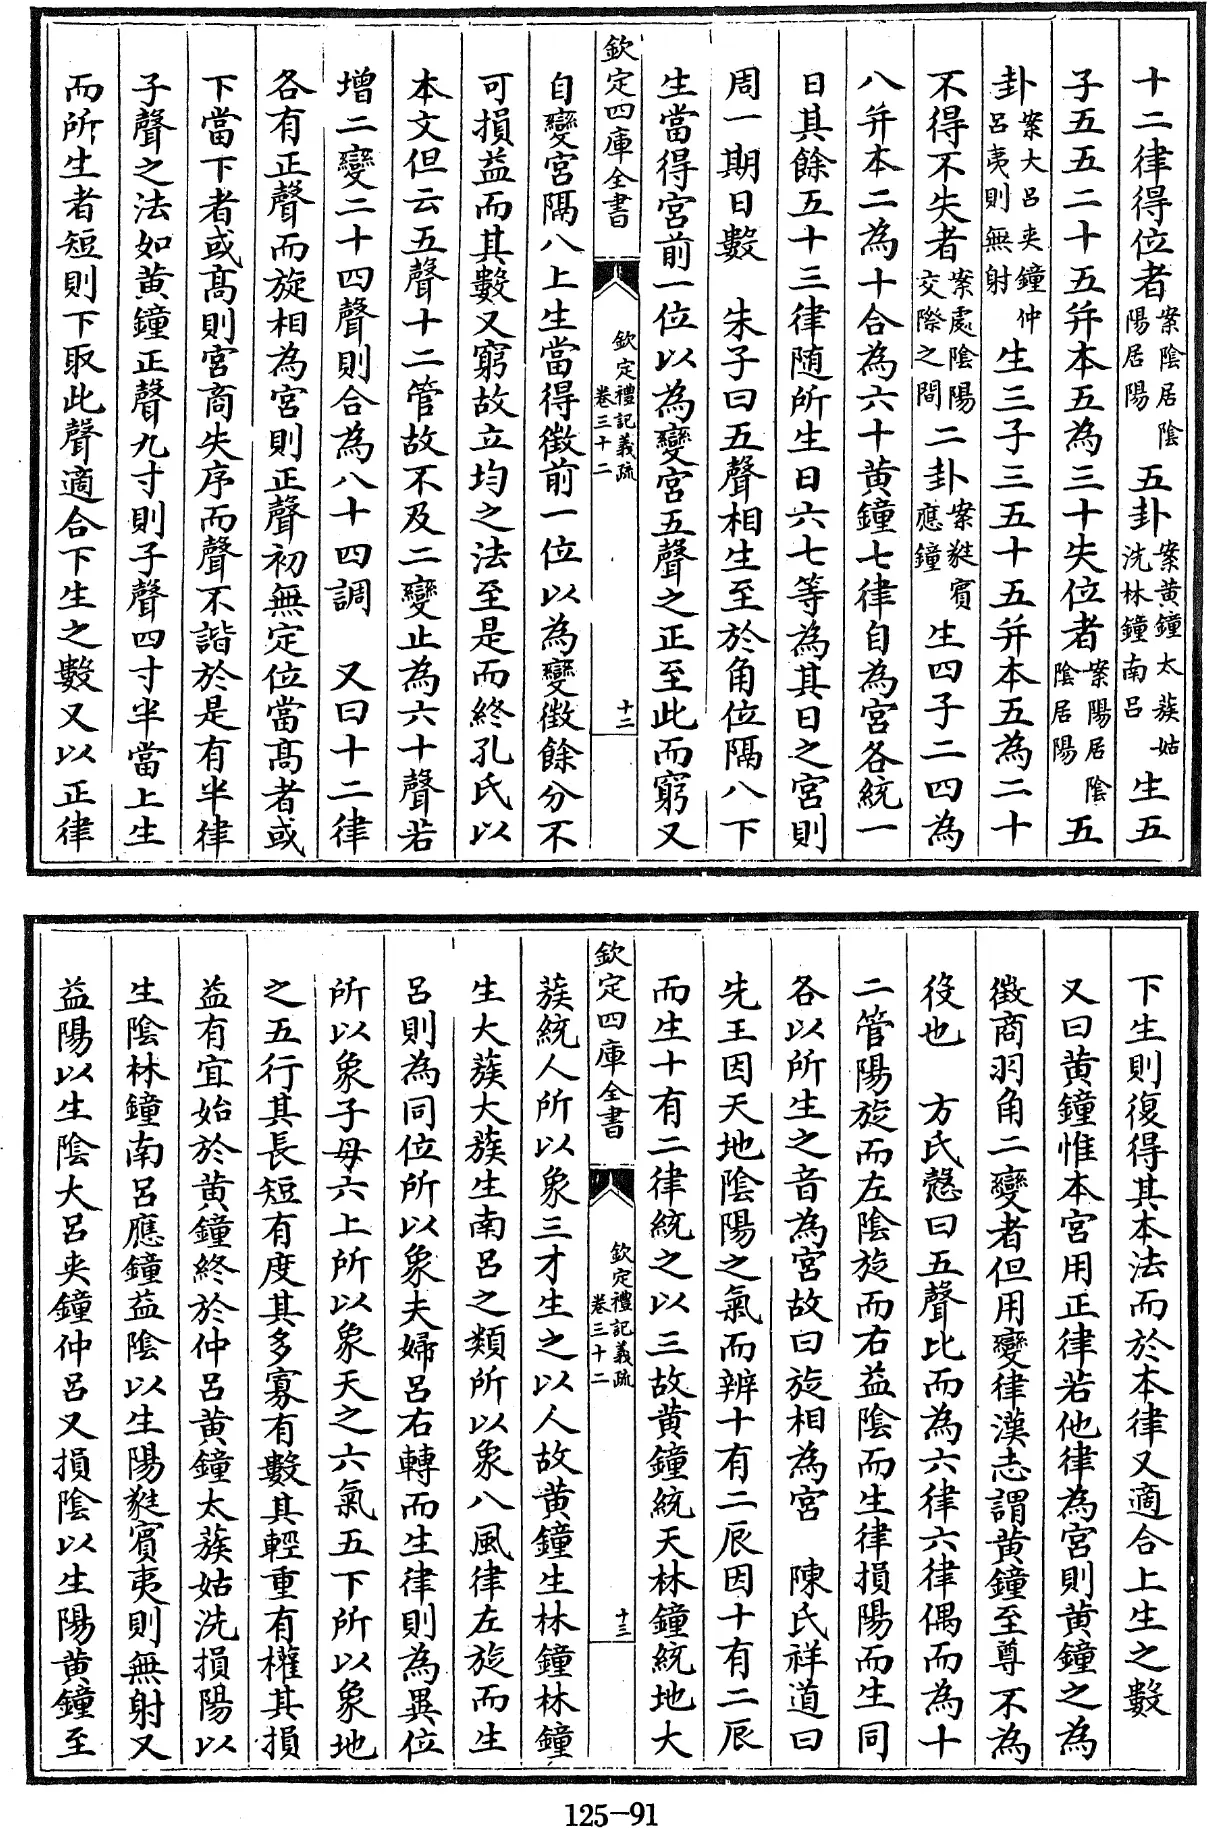 十二律得位者案陰居陰陽居陽五卦案黃鐘太蔟姑洗林鐘南呂生五
子五五二十五并本五為三十失位者案陽居陰陰居陽五
卦案大呂夾鐘仲呂夷則無射生三子三五十五并本五為二十
不得不失者案處陰陽交際之間二卦案蕤賓應鐘生四子二四為
八并本二為十合為六十黃鐘七律自為宮各統一
日其餘五十三律随所生日六七等為其日之宮則
周一期日數　朱子曰五聲相生至於角位隔八下
生當得宮前一位以為變宮五聲之正至此而窮又
欽定四庫全書
欽定禮記義疏
卷三十二
十二
自變宮隔八上生當得徵前一位以為變徵餘分不
可損益而其數又窮故立均之法至是而終孔氏以
本文但云五聲十二管故不及二變止為六十聲若
增二變二十四聲則合為八十四調　又曰十二律
各有正聲而旋相為宮則正聲初無定位當髙者或
下當下者或髙則宮商失序而聲不諧於是有半律
子聲之法如黃鐘正聲九寸則子聲四寸半當上生
而所生者短則下取此聲適合下生之數又以正律
下生則復得其本法而於本律又適合上生之數
又曰黃鐘惟本宮用正律若他律為宮則黃鐘之為
徵商羽角二變者但用變律漢志謂黃鐘至尊不為
役也　方氏慤曰五聲比而為六律六律偶而為十
二管陽旋而左陰旋而右益陰而生律損陽而生同
各以所生之音為宮故曰旋相為宮　陳氏祥道曰
先王因天地陰陽之氣而辨十有二辰因十有二辰
而生十有二律統之以三故黃鐘統天林鐘統地大
欽定四庫全書
欽定禮記義疏
卷三十二
十三
蔟統人所以象三才生之以人故黃鐘生林鐘林鐘
生大蔟大蔟生南呂之類所以象八風律左旋而生
呂則為同位所以象夫婦呂右轉而生律則為異位
所以象子母六上所以象天之六氣五下所以象地
之五行其長短有度其多寡有數其輕重有權其損
益有宜始於黃鐘終於仲呂黃鐘太蔟姑洗損陽以
生陰林鐘南呂應鐘益陰以生陽蕤賓夷則無射又
益陽以生陰大呂夾鐘仲呂又損陰以生陽黃鐘至
125-91